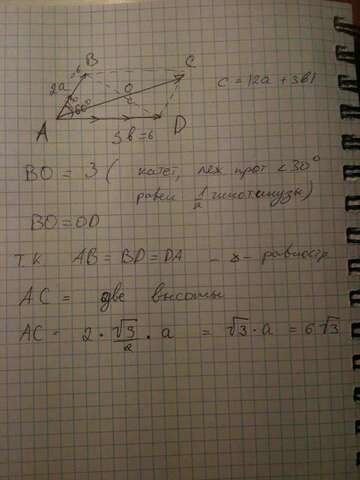 B
=6
C
2a
60°
O
c
c = |2a + 3b|
A
3b = 6
D
BO = 3 ( катет, леж прот < 30°
равен 1/2 гипотенузы)
BO = OD
т.к AB = BD = DA - - равностр
AC = две высоты
AC = 2 · √3/2 · a = √3 · a = 6√3